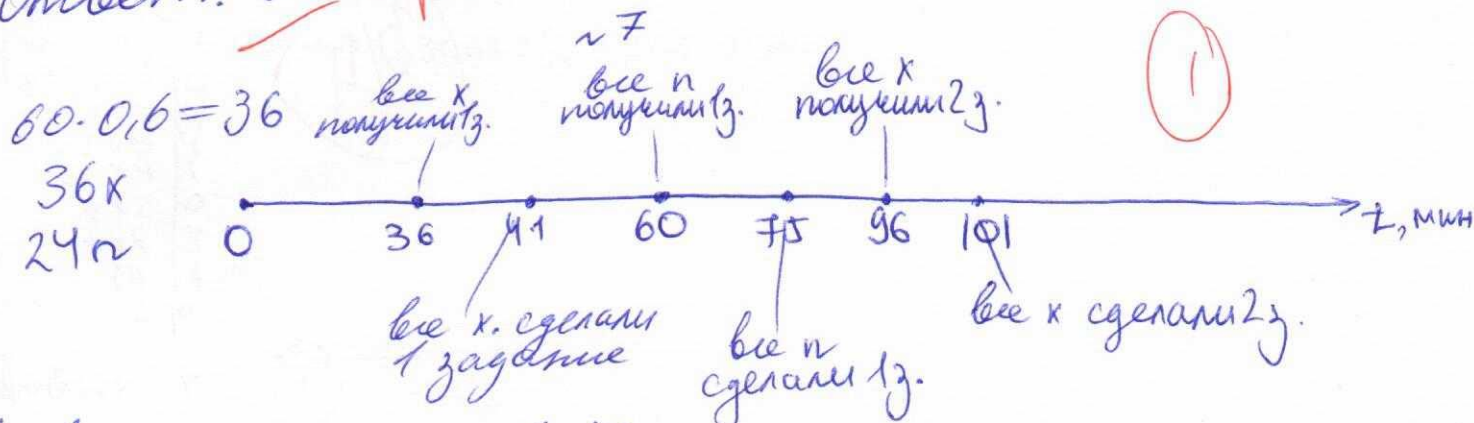 Ответ:
~7
60·0,6=36
36х
24п
все х
получили 1з.
все п
получили 1з.
все х
получили 2з.
1
0 36 41 60 75 96 101 t, мин
все х. сделали
1 задание
все п
сделали 1з.
все х сделали 2з.